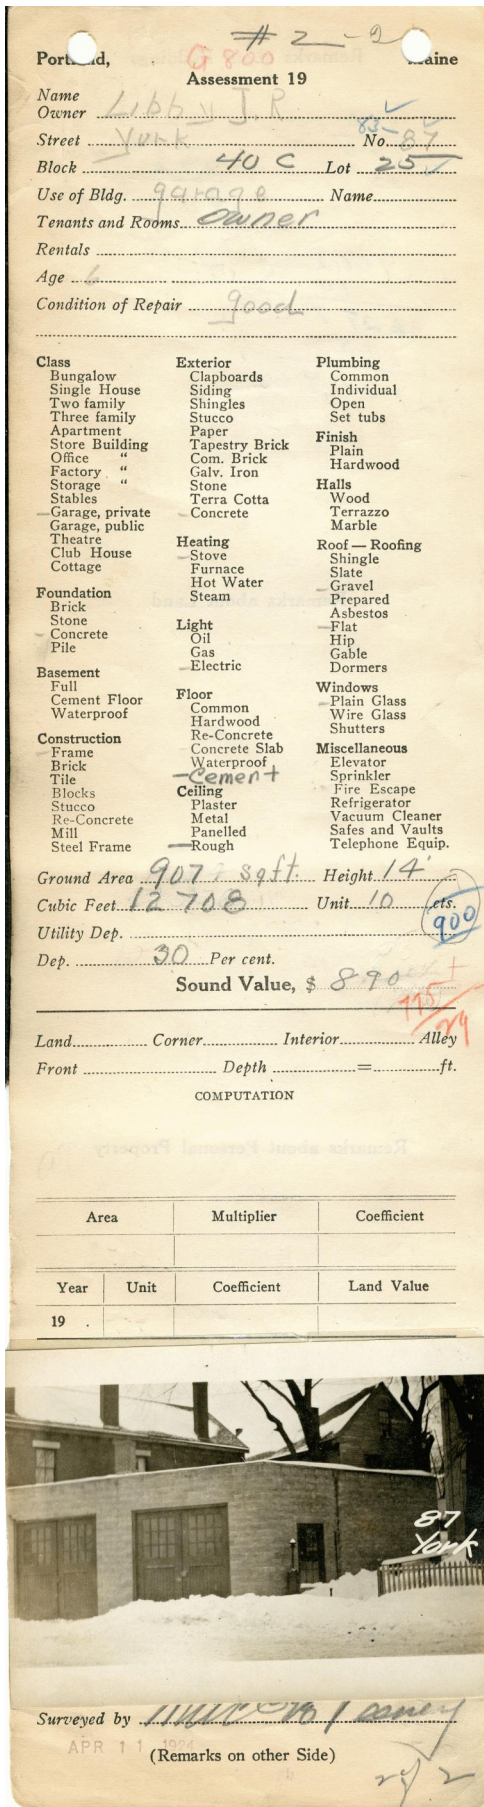 #2-2
G 800
Portland, Maine
Assessment 19
Name
Owner Libby J. R
83-
Street York No. 87
Block 40 C Lot 25
Use of Bldg. garage Name
Tenants and Rooms owner
Rentals
Age 6
Condition of Repair good
Class
Bungalow
Single House
Two family
Three family
Apartment
Store Building
Office "
Factory "
Storage "
Stables
Garage, private
Garage, public
Theatre
Club House
Cottage
Foundation
Brick
Stone
Concrete
Pile
Basement
Full
Cement Floor
Waterproof
Construction
Frame
Brick
Tile
Blocks
Stucco
Re-Concrete
Mill
Steel Frame
Exterior
Clapboards
Siding
Shingles
Stucco
Paper
Tapestry Brick
Com. Brick
Galv. Iron
Stone
Terra Cotta
Concrete
Heating
Stove
Furnace
Hot Water
Steam
Light
Oil
Gas
Electric
Floor
Common
Hardwood
Re-Concrete
Concrete Slab
Waterproof
Cement
Ceiling
Plaster
Metal
Panelled
Rough
Plumbing
Common
Individual
Open
Set tubs
Finish
Plain
Hardwood
Halls
Wood
Terrazzo
Marble
Roof — Roofing
Shingle
Slate
Gravel
Prepared
Asbestos
Flat
Hip
Gable
Dormers
Windows
Plain Glass
Wire Glass
Shutters
Miscellaneous
Elevator
Sprinkler
Fire Escape
Refrigerator
Vacuum Cleaner
Safes and Vaults
Telephone Equip.
Ground Area 907 sq ft. Height 14'
Cubic Feet 12708 Unit 10 cts.
900
Utility Dep.
Dep. 30 Per cent.
Sound Value, $ 890
775
29
Land Corner Interior Alley
Front Depth = ft.
COMPUTATION
Area Multiplier Coefficient
Year Unit Coefficient Land Value
19 .
87
York
Surveyed by
APR 11 1924
(Remarks on other Side)
2 of 2